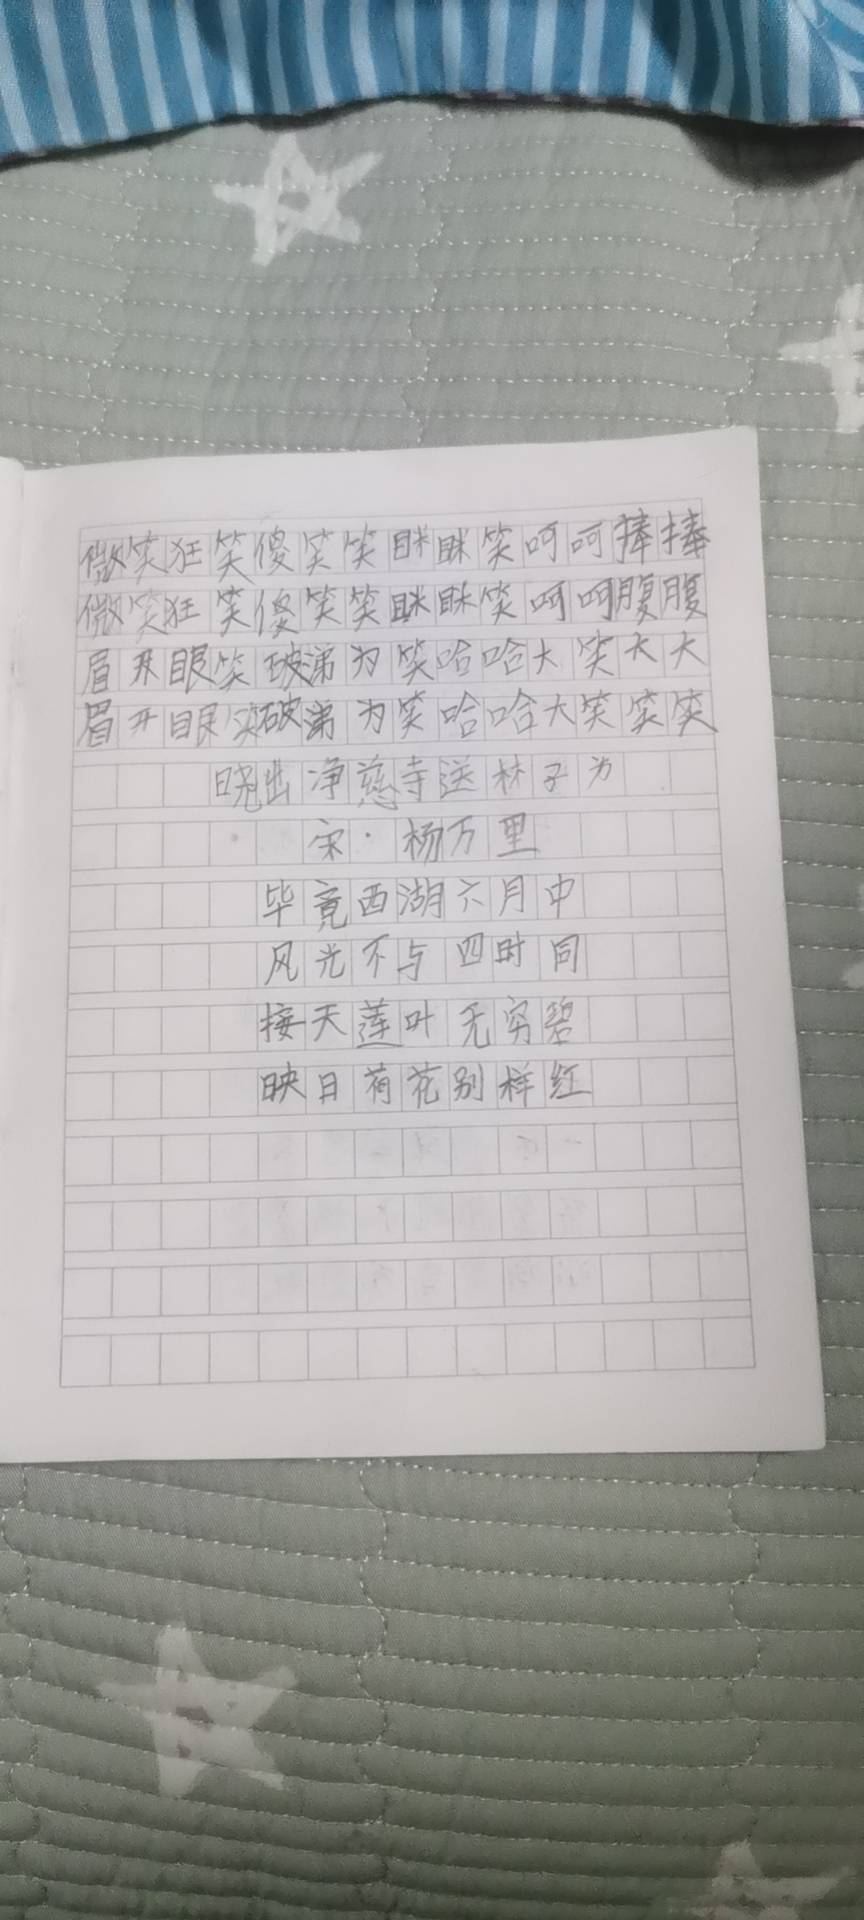 微笑狂笑傻笑笑眯眯笑呵呵捧捧
微笑狂笑傻笑笑眯眯笑呵呵腹腹
眉开眼笑破涕为笑哈哈大笑大大
眉开眼笑破涕为笑哈哈大笑笑笑
晓出净慈寺送林子为
宋·杨万里
毕竟西湖六月中
风光不与四时同
接天莲叶无穷碧
映日荷花别样红